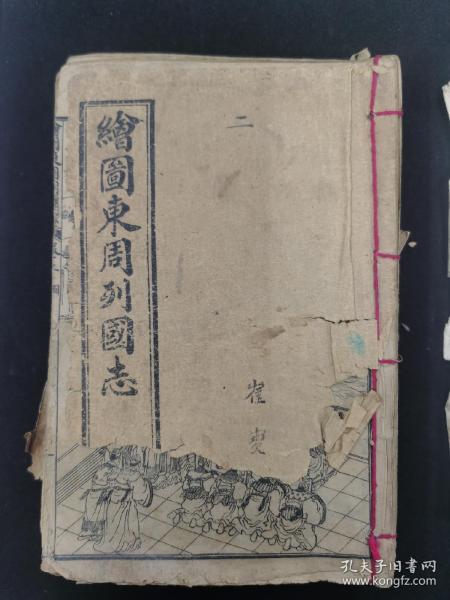 繪圖東周列國志
二
崔
孔夫子旧书网
www.kongfz.com